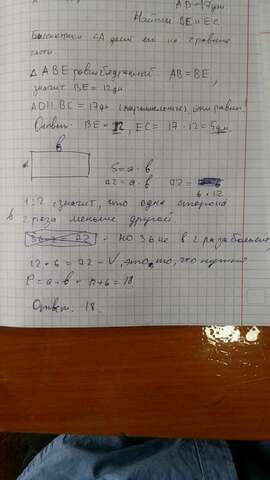 AD = 17дм.
Найти BE и EC
Биссектриса ∠A делит его на 2 равные
части
△ABE равнобедренный AB = BE,
значит BE = 12дм
AD || BC = 17дм (параллельны) они равны
Ответ: BE = 12, EC = 17 - 12 = 5дм
b
a
S = a · b
72 = a · b 72 =
6 · 12
1:2 значит, что одна сторона
в 2 раза меньше другой.
36 · 2 = 72 - но 36 не в 2 раза больше
12 · 6 = 72 - V, это то, что нужно
P = a + b = 12 + 6 = 18
Ответ: 18.